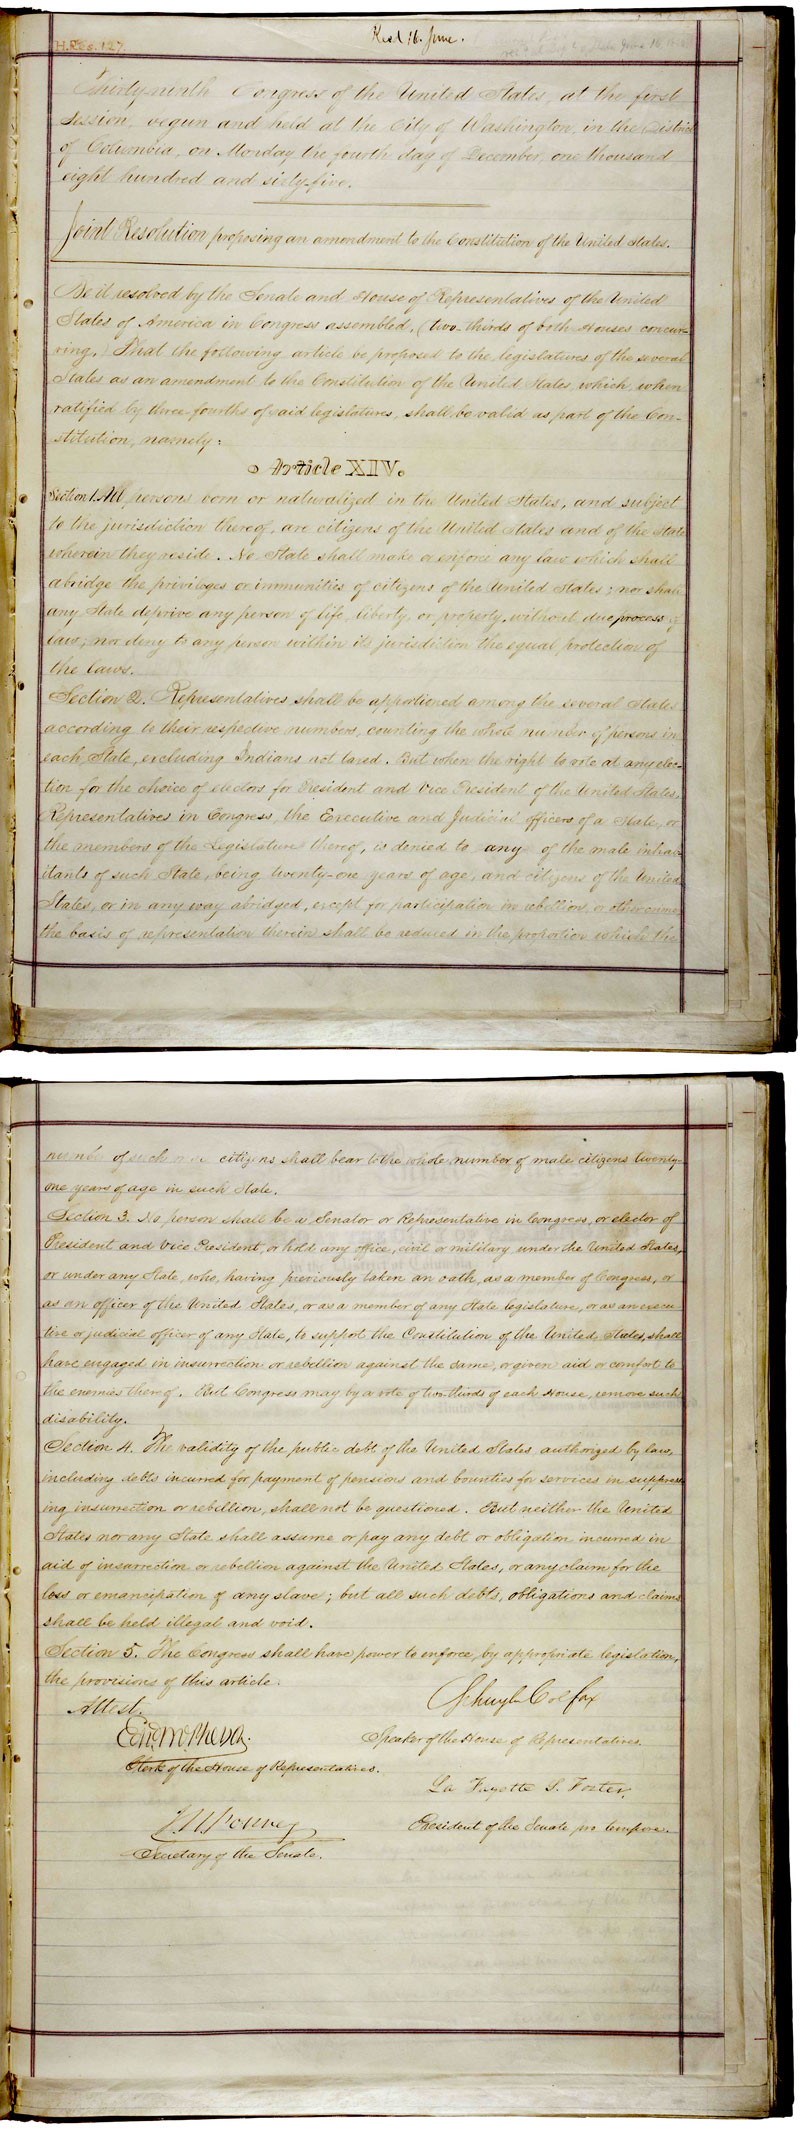 H.Res. 127.
Recd 16. June.
Thirty-ninth Congress of the United States, at the first
Session, begun and held at the City of Washington, in the District
of Columbia, on Monday the fourth day of December, one thousand
eight hundred and sixty-five.
Joint Resolution proposing an amendment to the Constitution of the United States.
Be it resolved by the Senate and House of Representatives of the United
States of America in Congress assembled, (two-thirds of both Houses concur-
ring,) That the following article be proposed to the legislatures of the several
States as an amendment to the Constitution of the United States, which, when
ratified by three-fourths of said legislatures, shall be valid as part of the Con-
stitution, namely:
Article XIV.
Section 1. All persons born or naturalized in the United States, and subject
to the jurisdiction thereof, are citizens of the United States and of the State
wherein they reside. No State shall make or enforce any law which shall
abridge the privileges or immunities of citizens of the United States; nor shall
any State deprive any person of life, liberty, or property, without due process of
law; nor deny to any person within its jurisdiction the equal protection of
the laws.
Section 2. Representatives shall be apportioned among the several States
according to their respective numbers, counting the whole number of persons in
each State, excluding Indians not taxed. But when the right to vote at any elec-
tion for the choice of electors for President and Vice President of the United States,
Representatives in Congress, the Executive and Judicial officers of a State, or
the members of the Legislature thereof, is denied to any of the male inhab-
itants of such State, being twenty-one years of age, and citizens of the United
States, or in any way abridged, except for participation in rebellion, or other crime,
the basis of representation therein shall be reduced in the proportion which the
number of such male citizens shall bear to the whole number of male citizens twenty-
one years of age in such State.
Section 3. No person shall be a Senator or Representative in Congress, or elector of
President and Vice President, or hold any office, civil or military, under the United States,
or under any State, who, having previously taken an oath, as a member of Congress, or
as an officer of the United States, or as a member of any State legislature, or as an execu-
tive or judicial officer of any State, to support the Constitution of the United States, shall
have engaged in insurrection or rebellion against the same, or given aid or comfort to
the enemies thereof. But Congress may by a vote of two-thirds of each House, remove such
disability.
Section 4. The validity of the public debt of the United States, authorized by law,
including debts incurred for payment of pensions and bounties for services in suppress-
ing insurrection or rebellion, shall not be questioned. But neither the United
States nor any State shall assume or pay any debt or obligation incurred in
aid of insurrection or rebellion against the United States, or any claim for the
loss or emancipation of any slave; but all such debts, obligations and claims
shall be held illegal and void.
Section 5. The Congress shall have power to enforce, by appropriate legislation,
the provisions of this article.
Attest.
Schuyler Colfax
Edwd McPherson
Speaker of the House of Representatives.
Clerk of the House of Representatives.
La Fayette S. Foster,
J. W. Forney
President of the Senate pro tempore.
Secretary of the Senate.